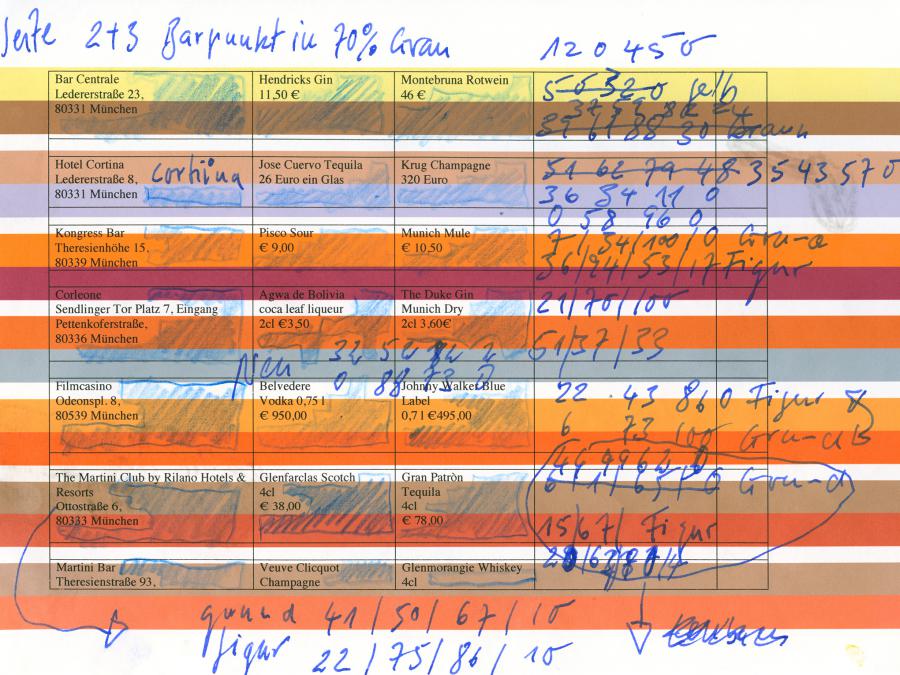 Seite 2+3 Barpunkt in 70% Grau 12 0 45 0
Bar Centrale
Ledererstraße 23,
80331 München
Hendricks Gin
11,50 €
Montebruna Rotwein
46 €
Hotel Cortina
Ledererstraße 8,
80331 München
cortiina
Jose Cuervo Tequila
26 Euro ein Glas
Krug Champagne
320 Euro
51 62 79 48 35 43 57 0
36 34 11 0
0 58 96 0
Kongress Bar
Theresienhöhe 15,
80339 München
Pisco Sour
€ 9,00
Munich Mule
€ 10,50
36/94/53/17 Figur
Corleone
Sendlinger Tor Platz 7, Eingang
Pettenkoferstraße,
80336 München
Agwa de Bolivia
coca leaf liqueur
2cl €3,50
The Duke Gin
Munich Dry
2cl 3,60€
21/70/100
51/37/33
Neu
Filmcasino
Odeonspl. 8,
80539 München
Belvedere
Vodka 0,75 l
€ 950,00
Johnny Walker Blue
Label
0,7 l €495,00
22 43 86 0 Figur
6 73 100
The Martini Club by Rilano Hotels &
Resorts
Ottostraße 6,
80333 München
Glenfarclas Scotch
4cl
€ 38,00
Gran Patròn
Tequila
4cl
€ 78,00
Grund
15/67/ Figur
Martini Bar
Theresienstraße 93,
Veuve Clicquot
Champagne
Glenmorangie Whiskey
4cl
grund 41/50/67/10
Figur 22/75/86/10